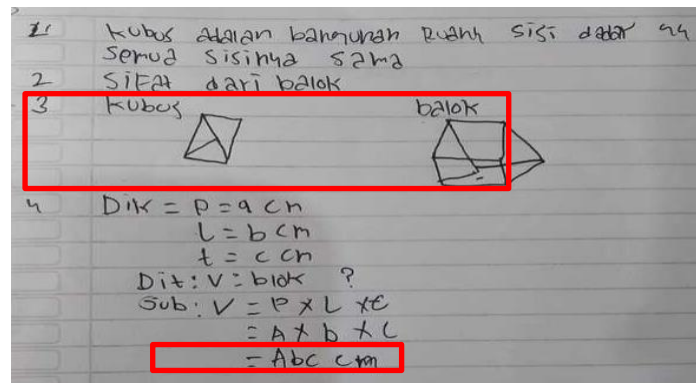 1. Kubus adalah bangunan Ruang sisi datar yg
semua sisinya sama
2 Sifat dari balok
3 Kubus balok
4 Dik = P = a cm
L = b cm
t = c cm
Dit : V = blok ?
Sub : V = P x L x t
= A x b x c
= Abc cm